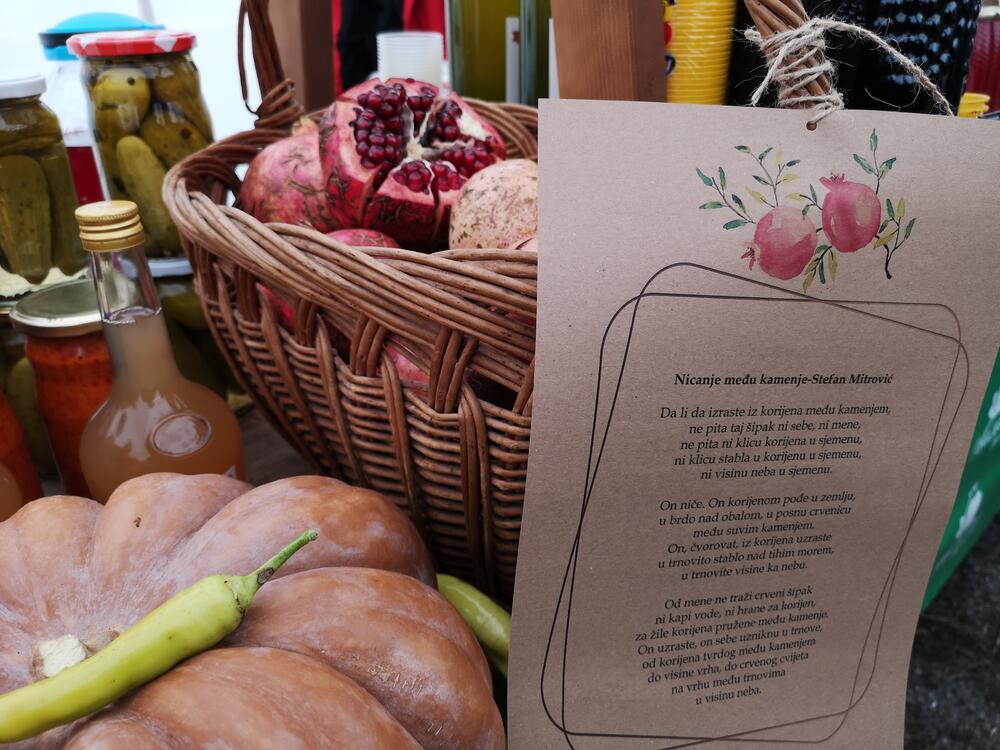 Nicanje među kamenje-Stefan Mitrović
Da li da izraste iz korijena među kamenjem,
ne pita taj šipak ni sebe, ni mene,
ne pita ni klicu korijena u sjemenu,
ni klicu stabla u korijenu u sjemenu,
ni visinu neba u sjemenu.
On niče. On korijenom pođe u zemlju,
u brdo nad obalom, u posnu crvenicu
među suvim kamenjem.
On, čvorovat, iz korijena uzraste
u trnovito stablo nad tihim morem,
u trnovite visine ka nebu.
Od mene ne traži crveni šipak
ni kapi vode, ni hrane za korijen,
za žile korijena pružene među kamenje.
On uzraste, on sebe uzniknu u trnove,
od korijena tvrdog među kamenjem
do visine vrha, do crvenog cvijeta
na vrhu među trnovima
u visinu neba.